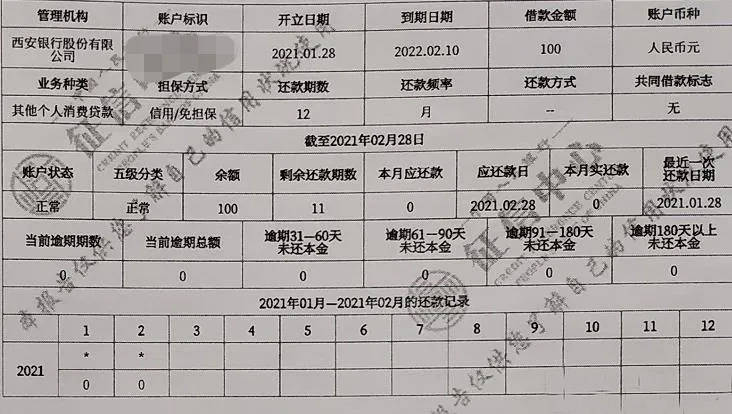 管理机构 账户标识 开立日期 到期日期 借款金额 账户币种
西安银行股份有限公司 2021.01.28 2022.02.10 100 人民币元
业务种类 担保方式 还款期数 还款频率 还款方式 共同借款标志
其他个人消费贷款 信用/免担保 12 月 -- 无
截至2021年02月28日
账户状态 五级分类 余额 剩余还款期数 本月应还款 应还款日 本月实还款 最近一次还款日期
正常 正常 100 11 0 2021.02.28 0 2021.01.28
当前逾期期数 当前逾期总额 逾期31—60天未还本金 逾期61—90天未还本金 逾期91—180天未还本金 逾期180天以上未还本金
0 0 0 0 0 0
2021年01月—2021年02月的还款记录
1 2 3 4 5 6 7 8 9 10 11 12
2021 * *
0 0
中国人民银行
征信中心
CREDIT REFERENCE CENTER
PEOPLE'S BANK OF CHINA
本报告仅供您了解自己的信用状况使用